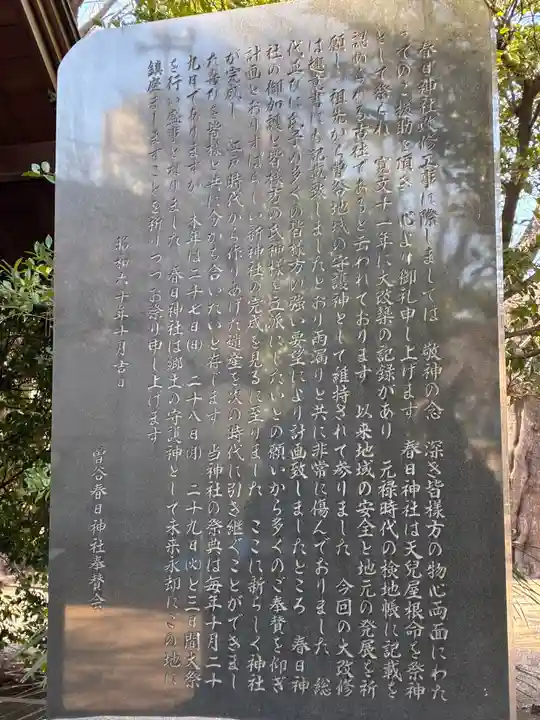 春日神社改修工事に際しましては 敬神の念 深き皆様方の物心両面にわた
ってのご援助を頂き 心より御礼申し上げます 春日神社は天兒屋根命を祭神
として祭られ 寛文十一年に大改築の記録があり 元禄時代の検地帳に記載を
認められる古社であると云われております 以来地域の安全と地元の発展を祈
願し 祖先から曽谷地域の守護神として維持されて参りました 今回の大改修
は趣意書にも記載致しましたとおり雨漏りと共に非常に傷んでおりました 総
代並びに氏子の多くの皆様方の強い要望により計画致しましたところ 春日神
社の御加護と皆様方の氏神様を立派にしたいとの願いから多くのご奉賛を仰ぎ
計画どおりすばらしい新神社の完成を見るに至りました ここに新らしく神社
が完成し 江戸時代から作りあげた遺産を次の時代に引き継ぐことができまし
た喜びを皆様と共に分かち合いたいと存じます 当神社の祭典は毎年十月二十
九日でありますが 本年は二十七日(日) 二十八日(月) 二十九日(火)と三日間大祭
を行い盛事を祝りました 春日神社は郷土の守護神として未来永却にこの地に
鎮座ましますことを祈りつつお祭り申し上げます
昭和六十年十月吉日
曽谷春日神社奉賛会